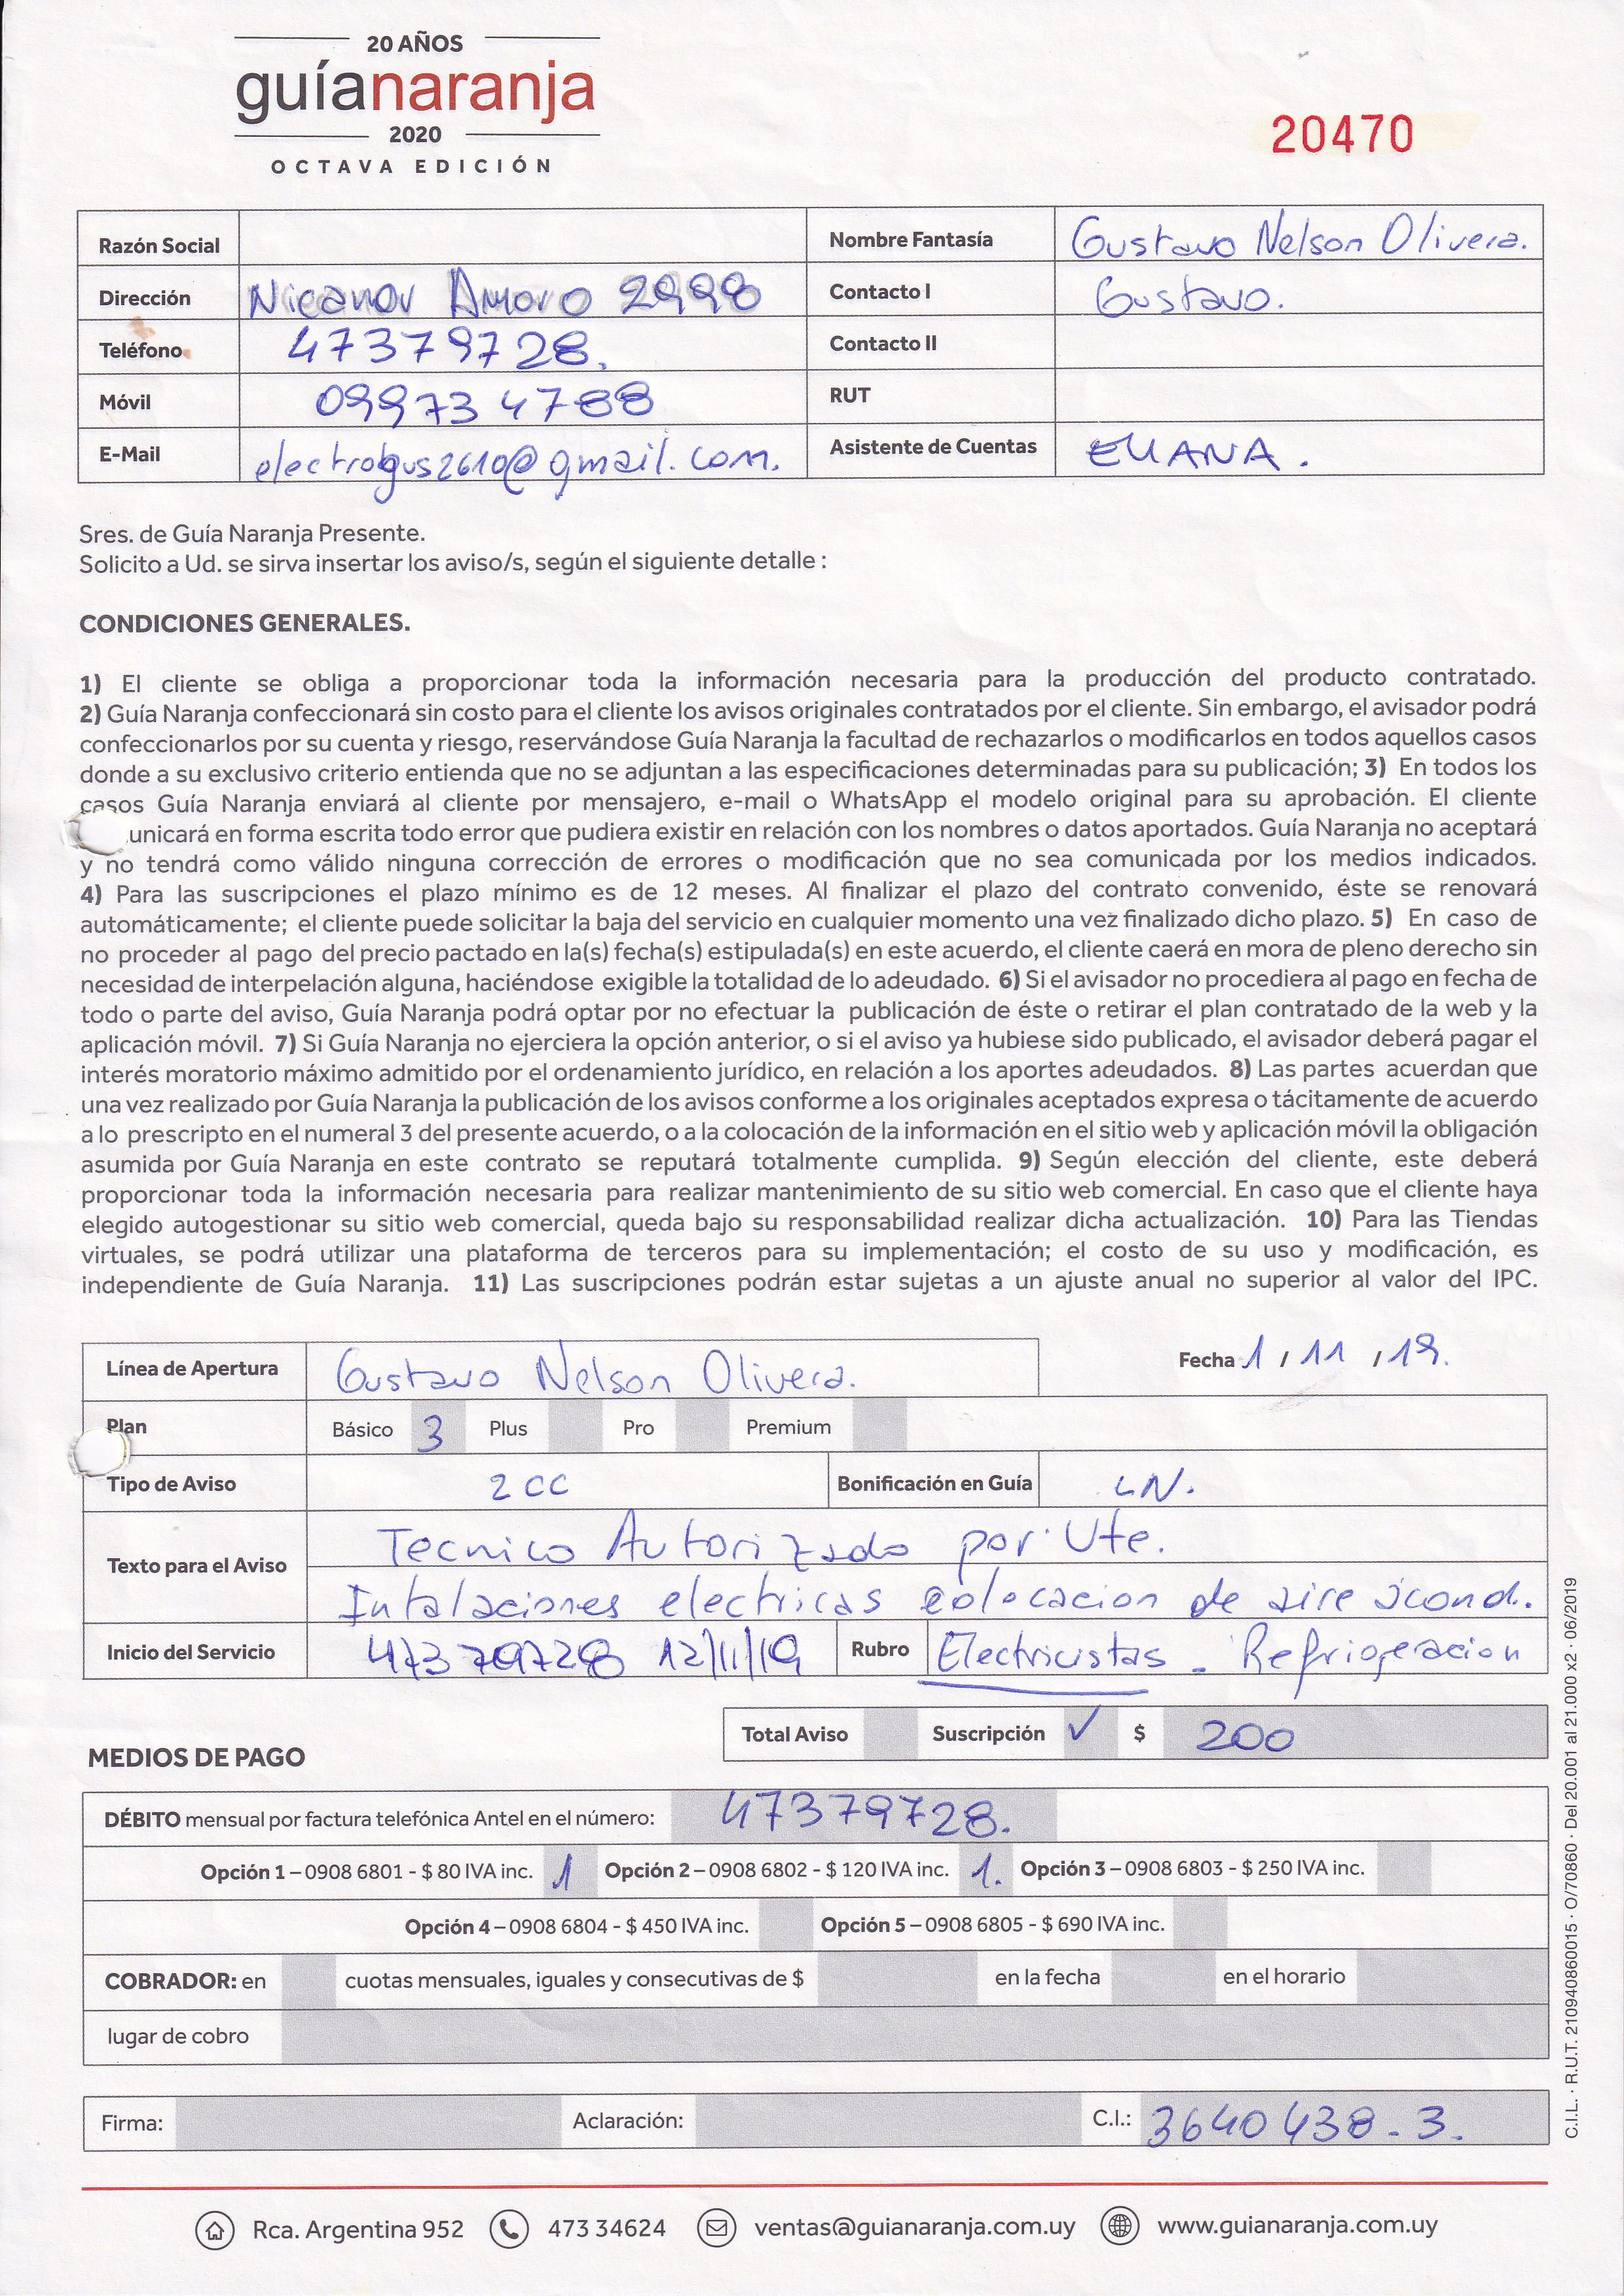 20 AÑOS
guíanaranja
2020
OCTAVA EDICIÓN
20470
Razón Social Nombre Fantasía Gustavo Nelson Olivera.
Dirección Nicanor Amoro 2998 Contacto I Gustavo.
Teléfono 47379728. Contacto II
Móvil 099734788 RUT
E-Mail electrogus2610@gmail.com. Asistente de Cuentas ELIANA.
Sres. de Guía Naranja Presente.
Solicito a Ud. se sirva insertar los aviso/s, según el siguiente detalle :
CONDICIONES GENERALES.
1) El cliente se obliga a proporcionar toda la información necesaria para la producción del producto contratado.
2) Guía Naranja confeccionará sin costo para el cliente los avisos originales contratados por el cliente. Sin embargo, el avisador podrá
confeccionarlos por su cuenta y riesgo, reservándose Guía Naranja la facultad de rechazarlos o modificarlos en todos aquellos casos
donde a su exclusivo criterio entienda que no se adjuntan a las especificaciones determinadas para su publicación; 3) En todos los
casos Guía Naranja enviará al cliente por mensajero, e-mail o WhatsApp el modelo original para su aprobación. El cliente
unicará en forma escrita todo error que pudiera existir en relación con los nombres o datos aportados. Guía Naranja no aceptará
y no tendrá como válido ninguna corrección de errores o modificación que no sea comunicada por los medios indicados.
4) Para las suscripciones el plazo mínimo es de 12 meses. Al finalizar el plazo del contrato convenido, éste se renovará
automáticamente; el cliente puede solicitar la baja del servicio en cualquier momento una vez finalizado dicho plazo. 5) En caso de
no proceder al pago del precio pactado en la(s) fecha(s) estipulada(s) en este acuerdo, el cliente caerá en mora de pleno derecho sin
necesidad de interpelación alguna, haciéndose exigible la totalidad de lo adeudado. 6) Si el avisador no procediera al pago en fecha de
todo o parte del aviso, Guía Naranja podrá optar por no efectuar la publicación de éste o retirar el plan contratado de la web y la
aplicación móvil. 7) Si Guía Naranja no ejerciera la opción anterior, o si el aviso ya hubiese sido publicado, el avisador deberá pagar el
interés moratorio máximo admitido por el ordenamiento jurídico, en relación a los aportes adeudados. 8) Las partes acuerdan que
una vez realizado por Guía Naranja la publicación de los avisos conforme a los originales aceptados expresa o tácitamente de acuerdo
a lo prescripto en el numeral 3 del presente acuerdo, o a la colocación de la información en el sitio web y aplicación móvil la obligación
asumida por Guía Naranja en este contrato se reputará totalmente cumplida. 9) Según elección del cliente, este deberá
proporcionar toda la información necesaria para realizar mantenimiento de su sitio web comercial. En caso que el cliente haya
elegido autogestionar su sitio web comercial, queda bajo su responsabilidad realizar dicha actualización. 10) Para las Tiendas
virtuales, se podrá utilizar una plataforma de terceros para su implementación; el costo de su uso y modificación, es
independiente de Guía Naranja. 11) Las suscripciones podrán estar sujetas a un ajuste anual no superior al valor del IPC.
Línea de Apertura Gustavo Nelson Olivera. Fecha 1 / 11 / 19.
Plan Básico 3 Plus Pro Premium
Tipo de Aviso 2 CC Bonificación en Guía LN.
Texto para el Aviso Tecnico Autorizado por Ute.
Intalaciones electricas colocacion de aire acond.
Inicio del Servicio 47379728 12/11/19 Rubro Electricistas - Refrigeracion
Total Aviso Suscripción ✓ $ 200
MEDIOS DE PAGO
DÉBITO mensual por factura telefónica Antel en el número: 47379728.
Opción 1 – 0908 6801 - $ 80 IVA inc. 1 Opción 2 – 0908 6802 - $ 120 IVA inc. 1. Opción 3 – 0908 6803 - $ 250 IVA inc.
Opción 4 – 0908 6804 - $ 450 IVA inc. Opción 5 – 0908 6805 - $ 690 IVA inc.
COBRADOR: en cuotas mensuales, iguales y consecutivas de $ en la fecha en el horario
lugar de cobro
Firma: Aclaración: C.I.: 3640438-3.
Rca. Argentina 952 473 34624 ventas@guianaranja.com.uy www.guianaranja.com.uy
C.I.L. · R.U.T. 210940860015 · O/70860 · Del 20.001 al 21.000 x2 · 06/2019